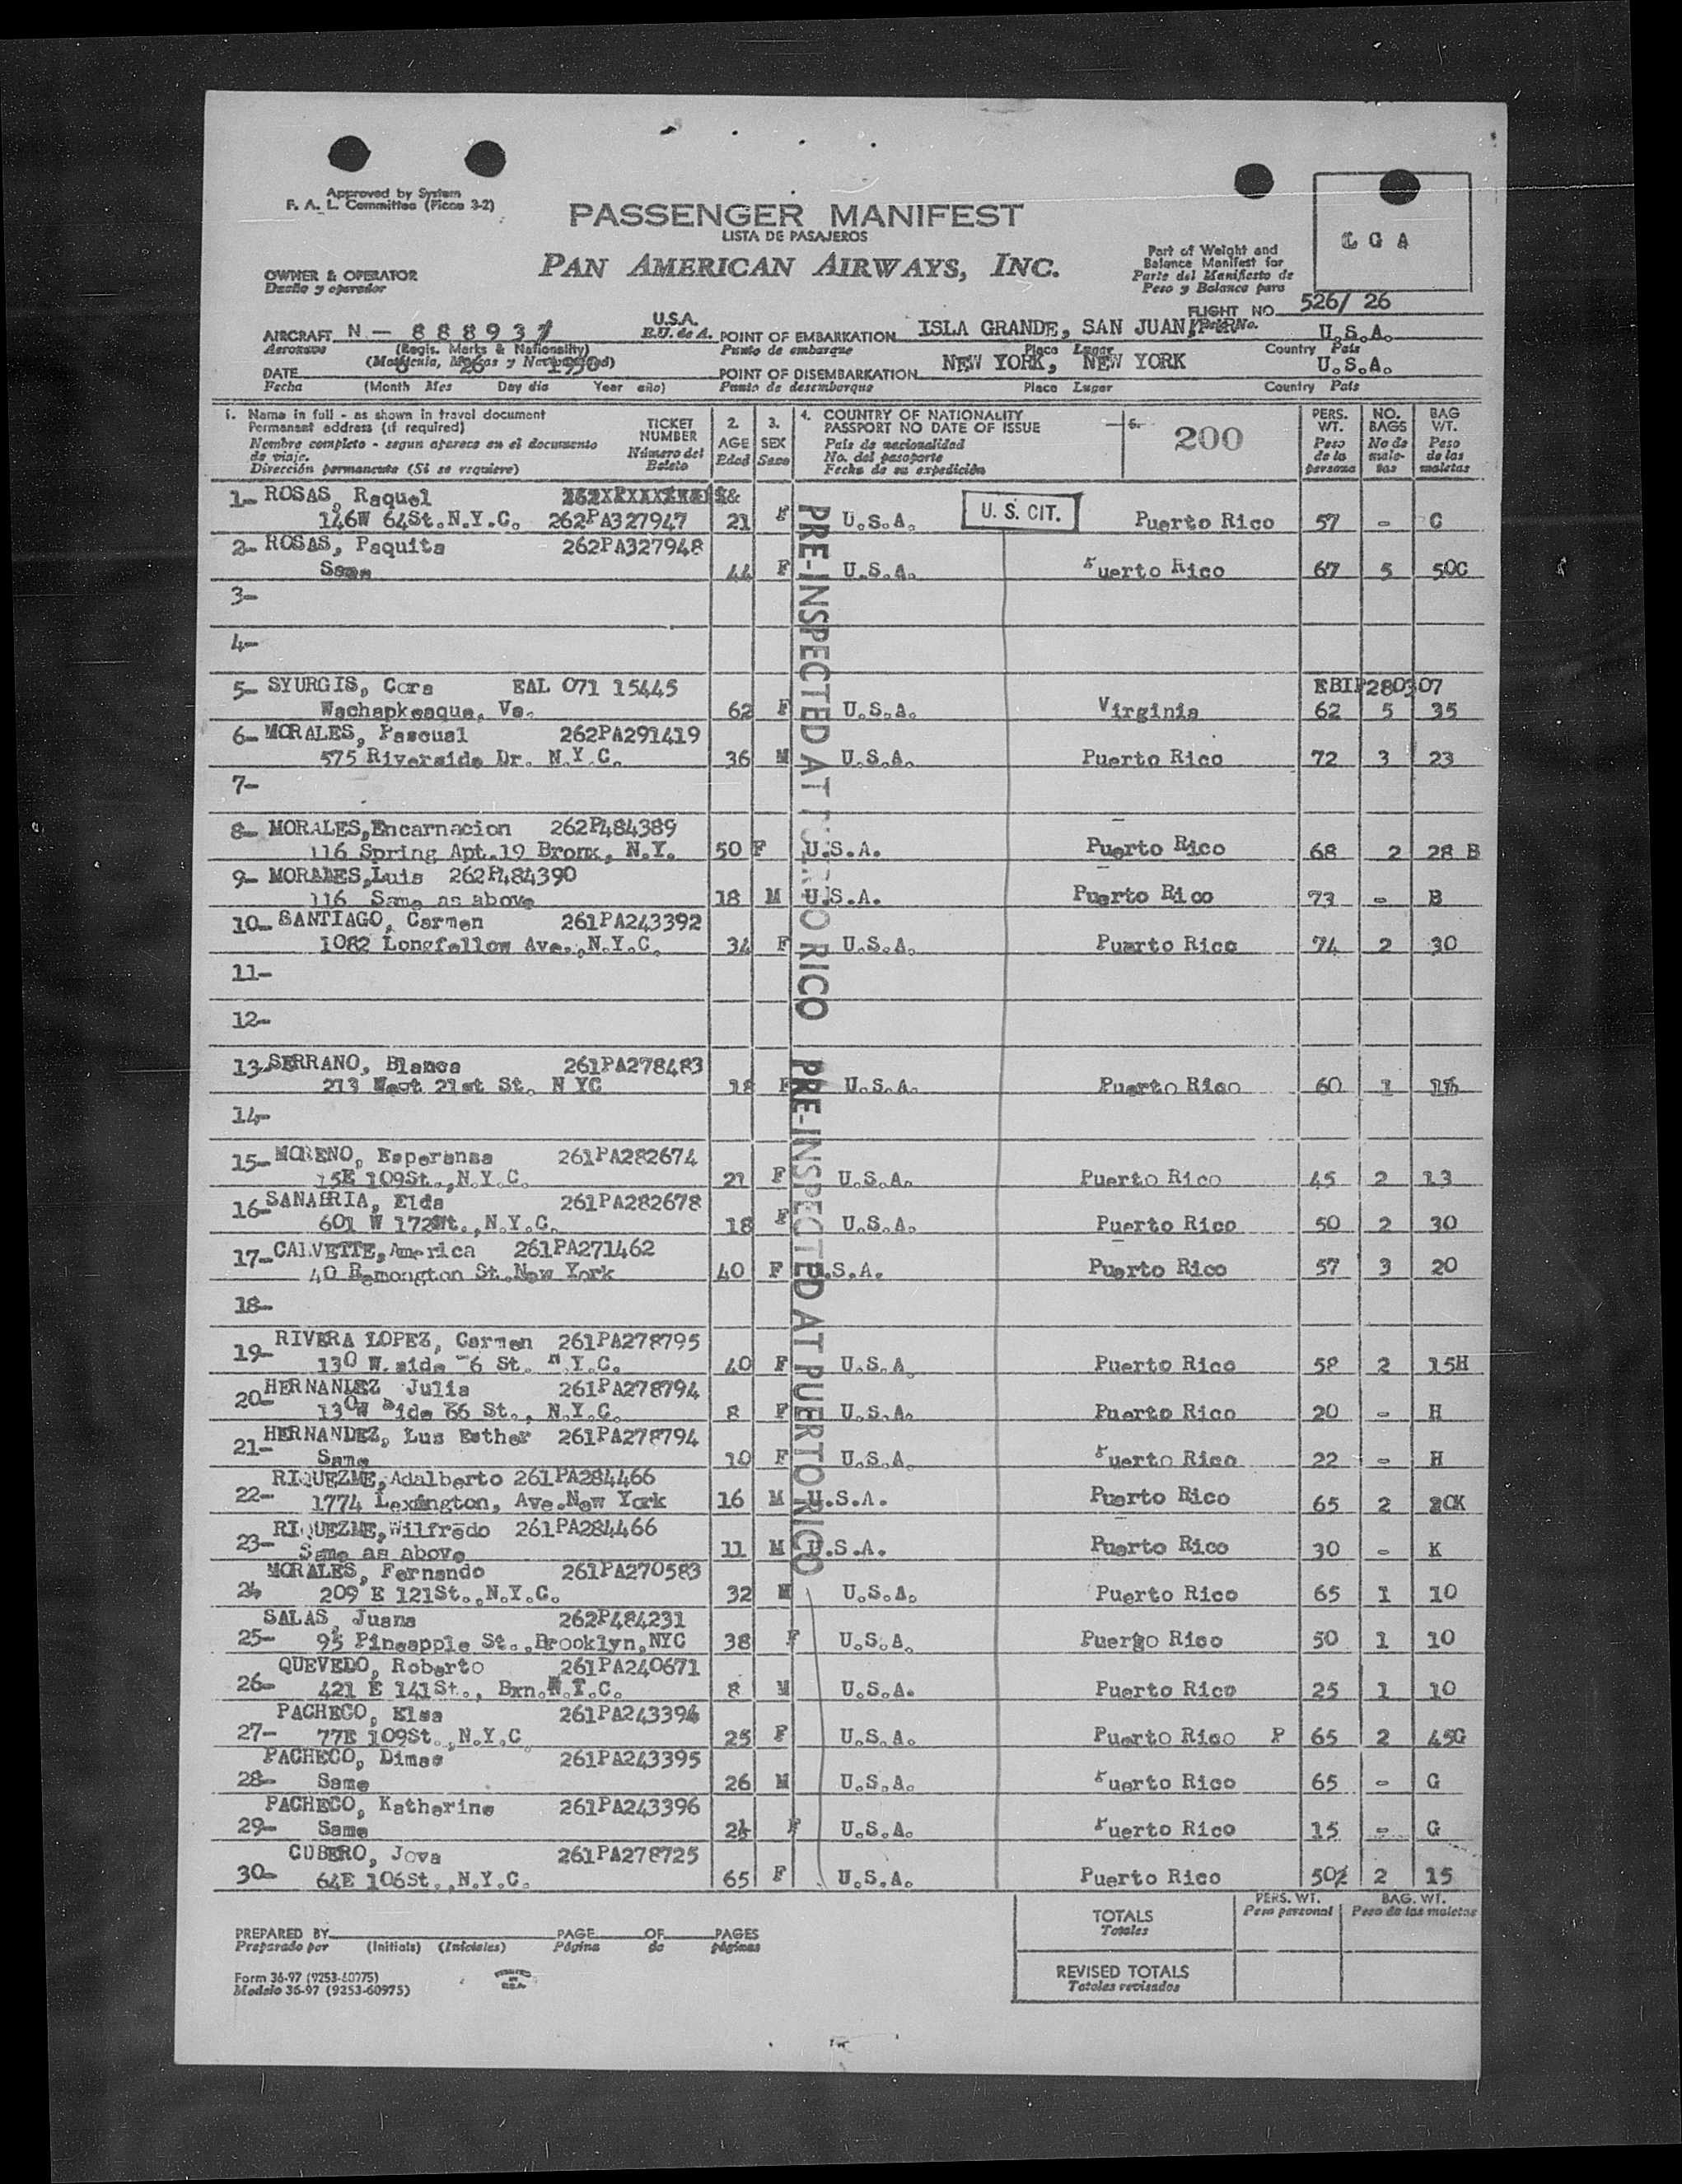 Approved by System
F. A. L. Committee (Ficao 3-2)
PASSENGER MANIFEST
LISTA DE PASAJEROS
PAN AMERICAN AIRWAYS, INC.
L G A
Part of Weight and
Balance Manifest for
Parte del Manifiesto de
Peso y Balance para
OWNER & OPERATOR
Dueño y operador
FLIGHT NO. 526/ 26
AIRCRAFT N - 88893 U.S.A. POINT OF EMBARKATION ISLA GRANDE, SAN JUAN, U.S.A.
Aeronave (Regis. Marks & Nationality) E.U. de A. Punto de embarque Place Lugar Country País
(Matricula, Marcas y Nacionalidad)
DATE 26 1950 POINT OF DISEMBARKATION NEW YORK, NEW YORK U.S.A.
Fecha (Month Mes Day dia Year año) Punto de desembarque Place Lugar Country País
1. Name in full - as shown in travel document
Permanent address (if required)
Nombre completo - segun aparece en el documento
de viaje.
Dirección permanente (Si se requiere)
TICKET
NUMBER
Número del
Boleto
2.
AGE
Edad
3.
SEX
Sexo
4. COUNTRY OF NATIONALITY
PASSPORT NO DATE OF ISSUE
País de nacionalidad
No. del pasaporte
Fecha de su expedición
5.
200
PERS.
WT.
Peso
de la
persona
NO.
BAGS
No de
male-
tas
BAG
WT.
Peso
de las
maletas
1- ROSAS, Raquel
146W 64St.N.Y.C. 262PA327947 21 F U.S.A. U. S. CIT. Puerto Rico 57 - C
2- ROSAS, Paquita 262PA327948
Same 44 F U.S.A. Puerto Rico 67 5 50C
3-
4-
5- SYURGIS, Cora EAL 071 15445 EBIP280307
Wachapkeaque, Va. 62 F U.S.A. Virginia 62 5 35
6- MORALES, Pascual 262PA291419
575 Riverside Dr. N.Y.C. 36 M U.S.A. Puerto Rico 72 3 23
7-
8- MORALES,Encarnacion 262P484389
116 Spring Apt.19 Bronx, N.Y. 50 F U.S.A. Puerto Rico 68 2 28 B
9- MORALES,Luis 262P484390
116 Same as above 18 M U.S.A. Puerto Rico 73 - B
10- SANTIAGO, Carmen 261PA243392
1082 Longfellow Ave.,N.Y.C. 34 F U.S.A. Puerto Rico 74 2 30
11-
12-
13- SERRANO, Blanca 261PA278483
213 West 21st St. N YC 18 F U.S.A. Puerto Rico 60 1
14-
15- MORENO, Esperansa 261PA282674
15E 109St.,N.Y.C. 21 F U.S.A. Puerto Rico 45 2 13
16- SANABRIA, Elda 261PA282678
601 W 172St.,N.Y.C. 18 F U.S.A. Puerto Rico 50 2 30
17- CALVETTE,America 261PA271462
40 Remongton St.New York 40 F U.S.A. Puerto Rico 57 3 20
18-
19- RIVERA LOPEZ, Carmen 261PA278795
130 W.side 6 St. N.Y.C. 40 F U.S.A. Puerto Rico 58 2 15H
20- HERNANDEZ Julia 261PA278794
130W Side 66 St., N.Y.C. 8 F U.S.A. Puerto Rico 20 - H
21- HERNANDEZ, Lus Esther 261PA278794
Same 10 F U.S.A. Puerto Rico 22 - H
RIQUEZME,Adalberto 261PA284466
22- 1774 Lexington, Ave.New York 16 M U.S.A. Puerto Rico 65 2 20K
RIQUEZME,Wilfredo 261PA284466
23- Same as above 11 M U.S.A. Puerto Rico 30 - K
MORALES, Fernando 261PA270583
24 209 E 121St.,N.Y.C. 32 M U.S.A. Puerto Rico 65 1 10
SALAS, Juana 262P484231
25- 95 Pineapple St.,Brooklyn,NYC 38 F U.S.A. Puergo Rico 50 1 10
QUEVEDO, Roberto 261PA240671
26- 421 E 141St., Bxn.N.Y.C. 8 M U.S.A. Puerto Rico 25 1 10
PACHECO, Elsa 261PA243394
27- 77E 109St.,N.Y.C 25 F U.S.A. Puerto Rico P 65 2 45G
PACHECO, Dimas 261PA243395
28- Same 26 M U.S.A. Puerto Rico 65 - G
PACHECO, Katherine 261PA243396
29- Same F U.S.A. Puerto Rico 15 - G
CUBERO, Jova 261PA278725
30- 64E 106St.,N.Y.C. 65 F U.S.A. Puerto Rico 50 2 15
PRE-INSPECTED AT PUERTO RICO
PRE-INSPECTED AT PUERTO RICO
TOTALS
Totales
PERS. WT.
Peso personal
BAG. WT.
Peso de las maletas
REVISED TOTALS
Totales revisados
PREPARED BY PAGE OF PAGES
Preparado por (Initials) (Iniciales) Página de páginas
Form 36-97 (9253-60975)
Modelo 36-97 (9253-60975)
PRINTED
IN
U.S.A.